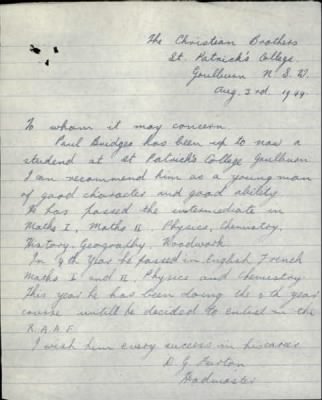 The Christian Brothers
St. Patrick's College
Goulburn N.S.W.
Aug. 3rd. 1944
To whom it may concern
Paul Bridges has been up to now a
student at St Patrick's College Goulburn
I can recommend him as a young man
of good character and good ability
He has passed the intermediate in
Maths I, Maths II, Physics, Chemistry,
History, Geography, Woodwork
In 4th Year he passed in English French
Maths I and II, Physics and Chemistry.
This year he has been doing the 5th year
course untill he decided to enlist in the
R.A.A.F.
I wish him every success in his career
D. G. Purton
Headmaster